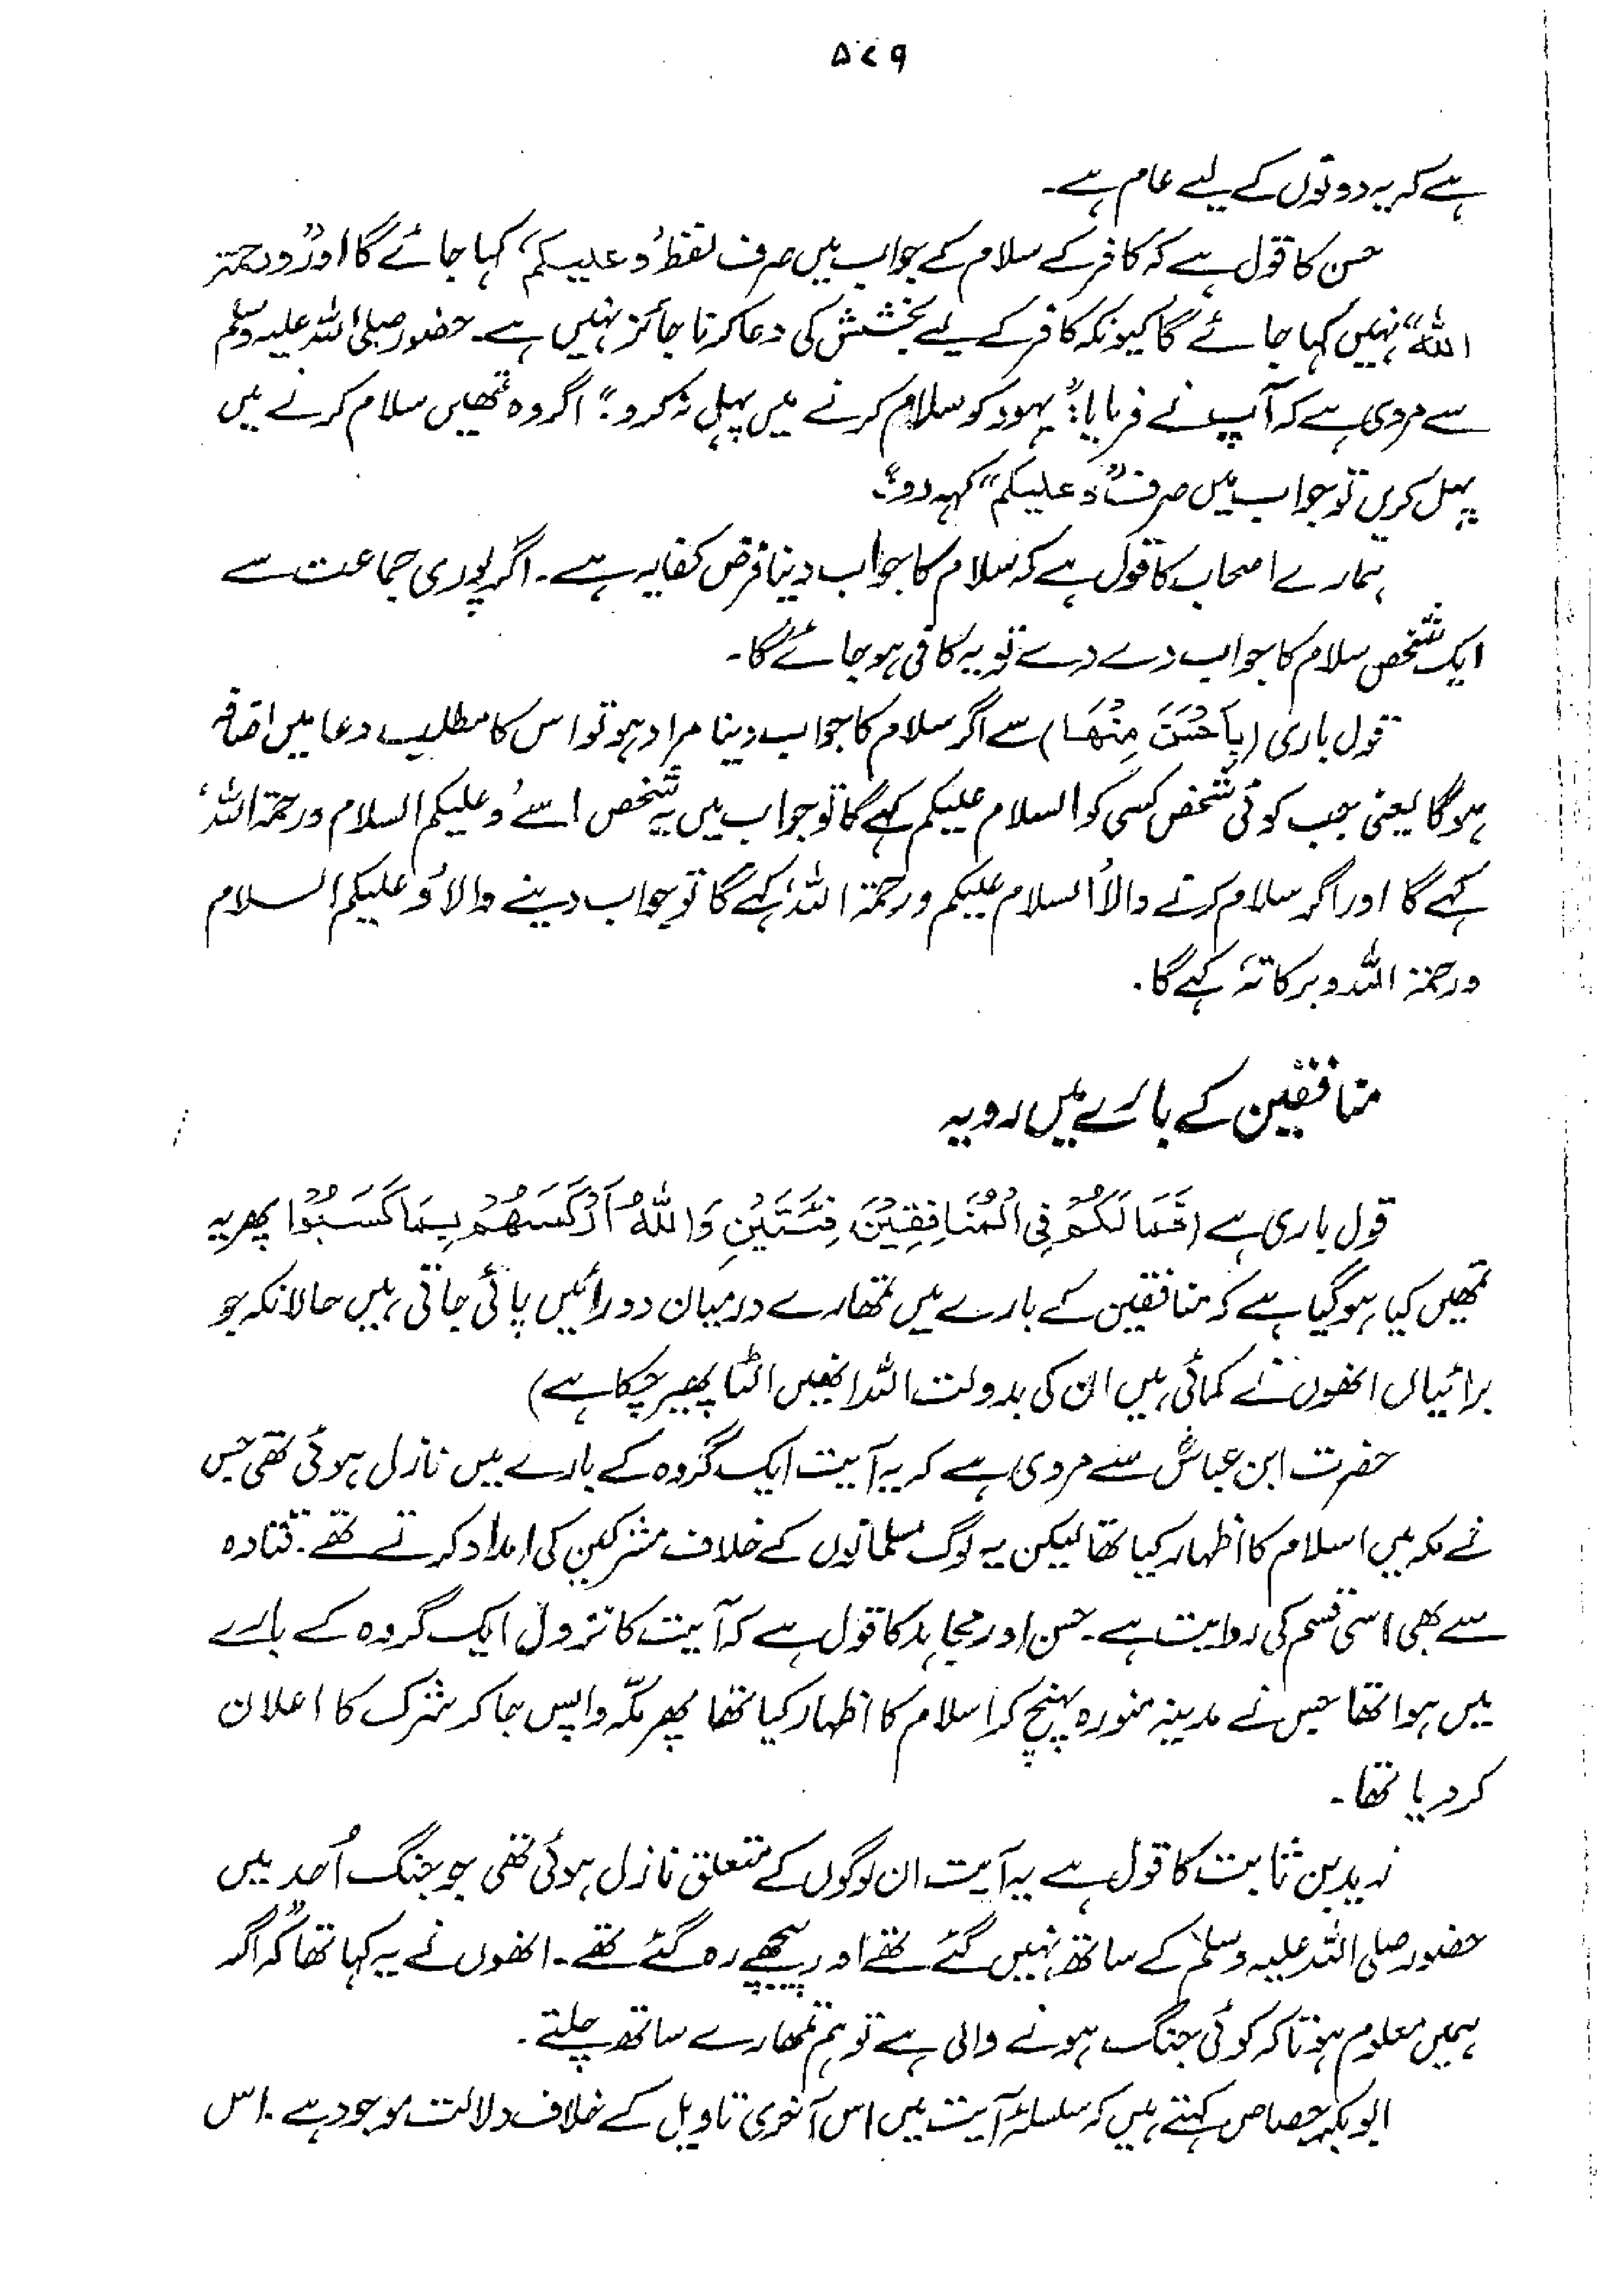 ۵۷۹
ہے کہ یہ دونوں کے لیے عام ہے۔
حسن کا قول ہے کہ کافر کے سلام کے جواب میں صرف لفظ 'وعلیکم' کہا جائے گا اور "ورحمتہ
اللہ" نہیں کہا جائے گا کیونکہ کافر کے لیے بخشش کی دعا کرنا جائز نہیں ہے۔ حضور صلی اللہ علیہ وسلم
سے مروی ہے کہ آپ نے فرمایا: "یہود کو سلام کرنے میں پہل نہ کرو"۔ اگر وہ تمھیں سلام کرنے میں
پہل کریں تو جواب میں صرف "وعلیکم" کہہ دو"۔
ہمارے اصحاب کا قول ہے کہ سلام کا جواب دینا فرض کفایہ ہے۔ اگر پوری جماعت سے
ایک شخص سلام کا جواب دے دے تو یہ کافی ہو جائے گا۔
قول باری (بِاَحْسَنَ مِنْهَا) سے اگر سلام کا جواب دینا مراد ہو تو اس کا مطلب دعا میں اضافہ
ہو گا یعنی جب کوئی شخص کسی کو السلام علیکم کہے گا تو جواب میں یہ شخص اسے 'وعلیکم السلام ورحمۃ اللہ'
کہے گا اور اگر سلام کرنے والا 'السلام علیکم ورحمۃ اللہ' کہے گا تو جواب دینے والا 'وعلیکم السلام
ورحمۃ اللہ وبرکاتہ' کہے گا۔
منافقین کے بارے میں رویہ
قول باری ہے (فَمَا لَكُمْ فِي الْمُنَافِقِيْنَ فِئَتَيْنِ وَاللّٰهُ اَرْكَسَهُمْ بِمَا كَسَبُوْا پھر یہ
تمھیں کیا ہو گیا ہے کہ منافقین کے بارے میں تمھارے درمیان دو رائیں پائی جاتی ہیں حالانکہ جو
برائیاں انھوں نے کمائی ہیں ان کی بدولت اللہ انھیں الٹا پھیر چکا ہے)
حضرت ابن عباسؓ سے مروی ہے کہ یہ آیت ایک گروہ کے بارے میں نازل ہوئی تھی جس
نے مکہ میں اسلام کا اظہار کیا تھا لیکن یہ لوگ مسلمانوں کے خلاف مشرکین کی امداد کرتے تھے۔ قتادہ
سے بھی اسی قسم کی روایت ہے۔ حسن اور مجاہد کا قول ہے کہ آیت کا نزول ایک گروہ کے بارے
میں ہوا تھا جس نے مدینہ منورہ پہنچ کر اسلام کا اظہار کیا تھا پھر مکہ واپس جا کر شرک کا اعلان
کر دیا تھا۔
زید بن ثابت کا قول ہے یہ آیت ان لوگوں کے متعلق نازل ہوئی تھی جو جنگ اُحد میں
حضور صلی اللہ علیہ وسلم کے ساتھ نہیں گئے تھے اور پیچھے رہ گئے تھے۔ انھوں نے یہ کہا تھا "کہ اگر
ہمیں معلوم ہوتا کہ کوئی جنگ ہونے والی ہے تو ہم تمھارے ساتھ چلتے۔
ابوبکر جصاص کہتے ہیں کہ سلسلۂ آیت میں اس آخری تاویل کے خلاف دلالت موجود ہے۔ اس